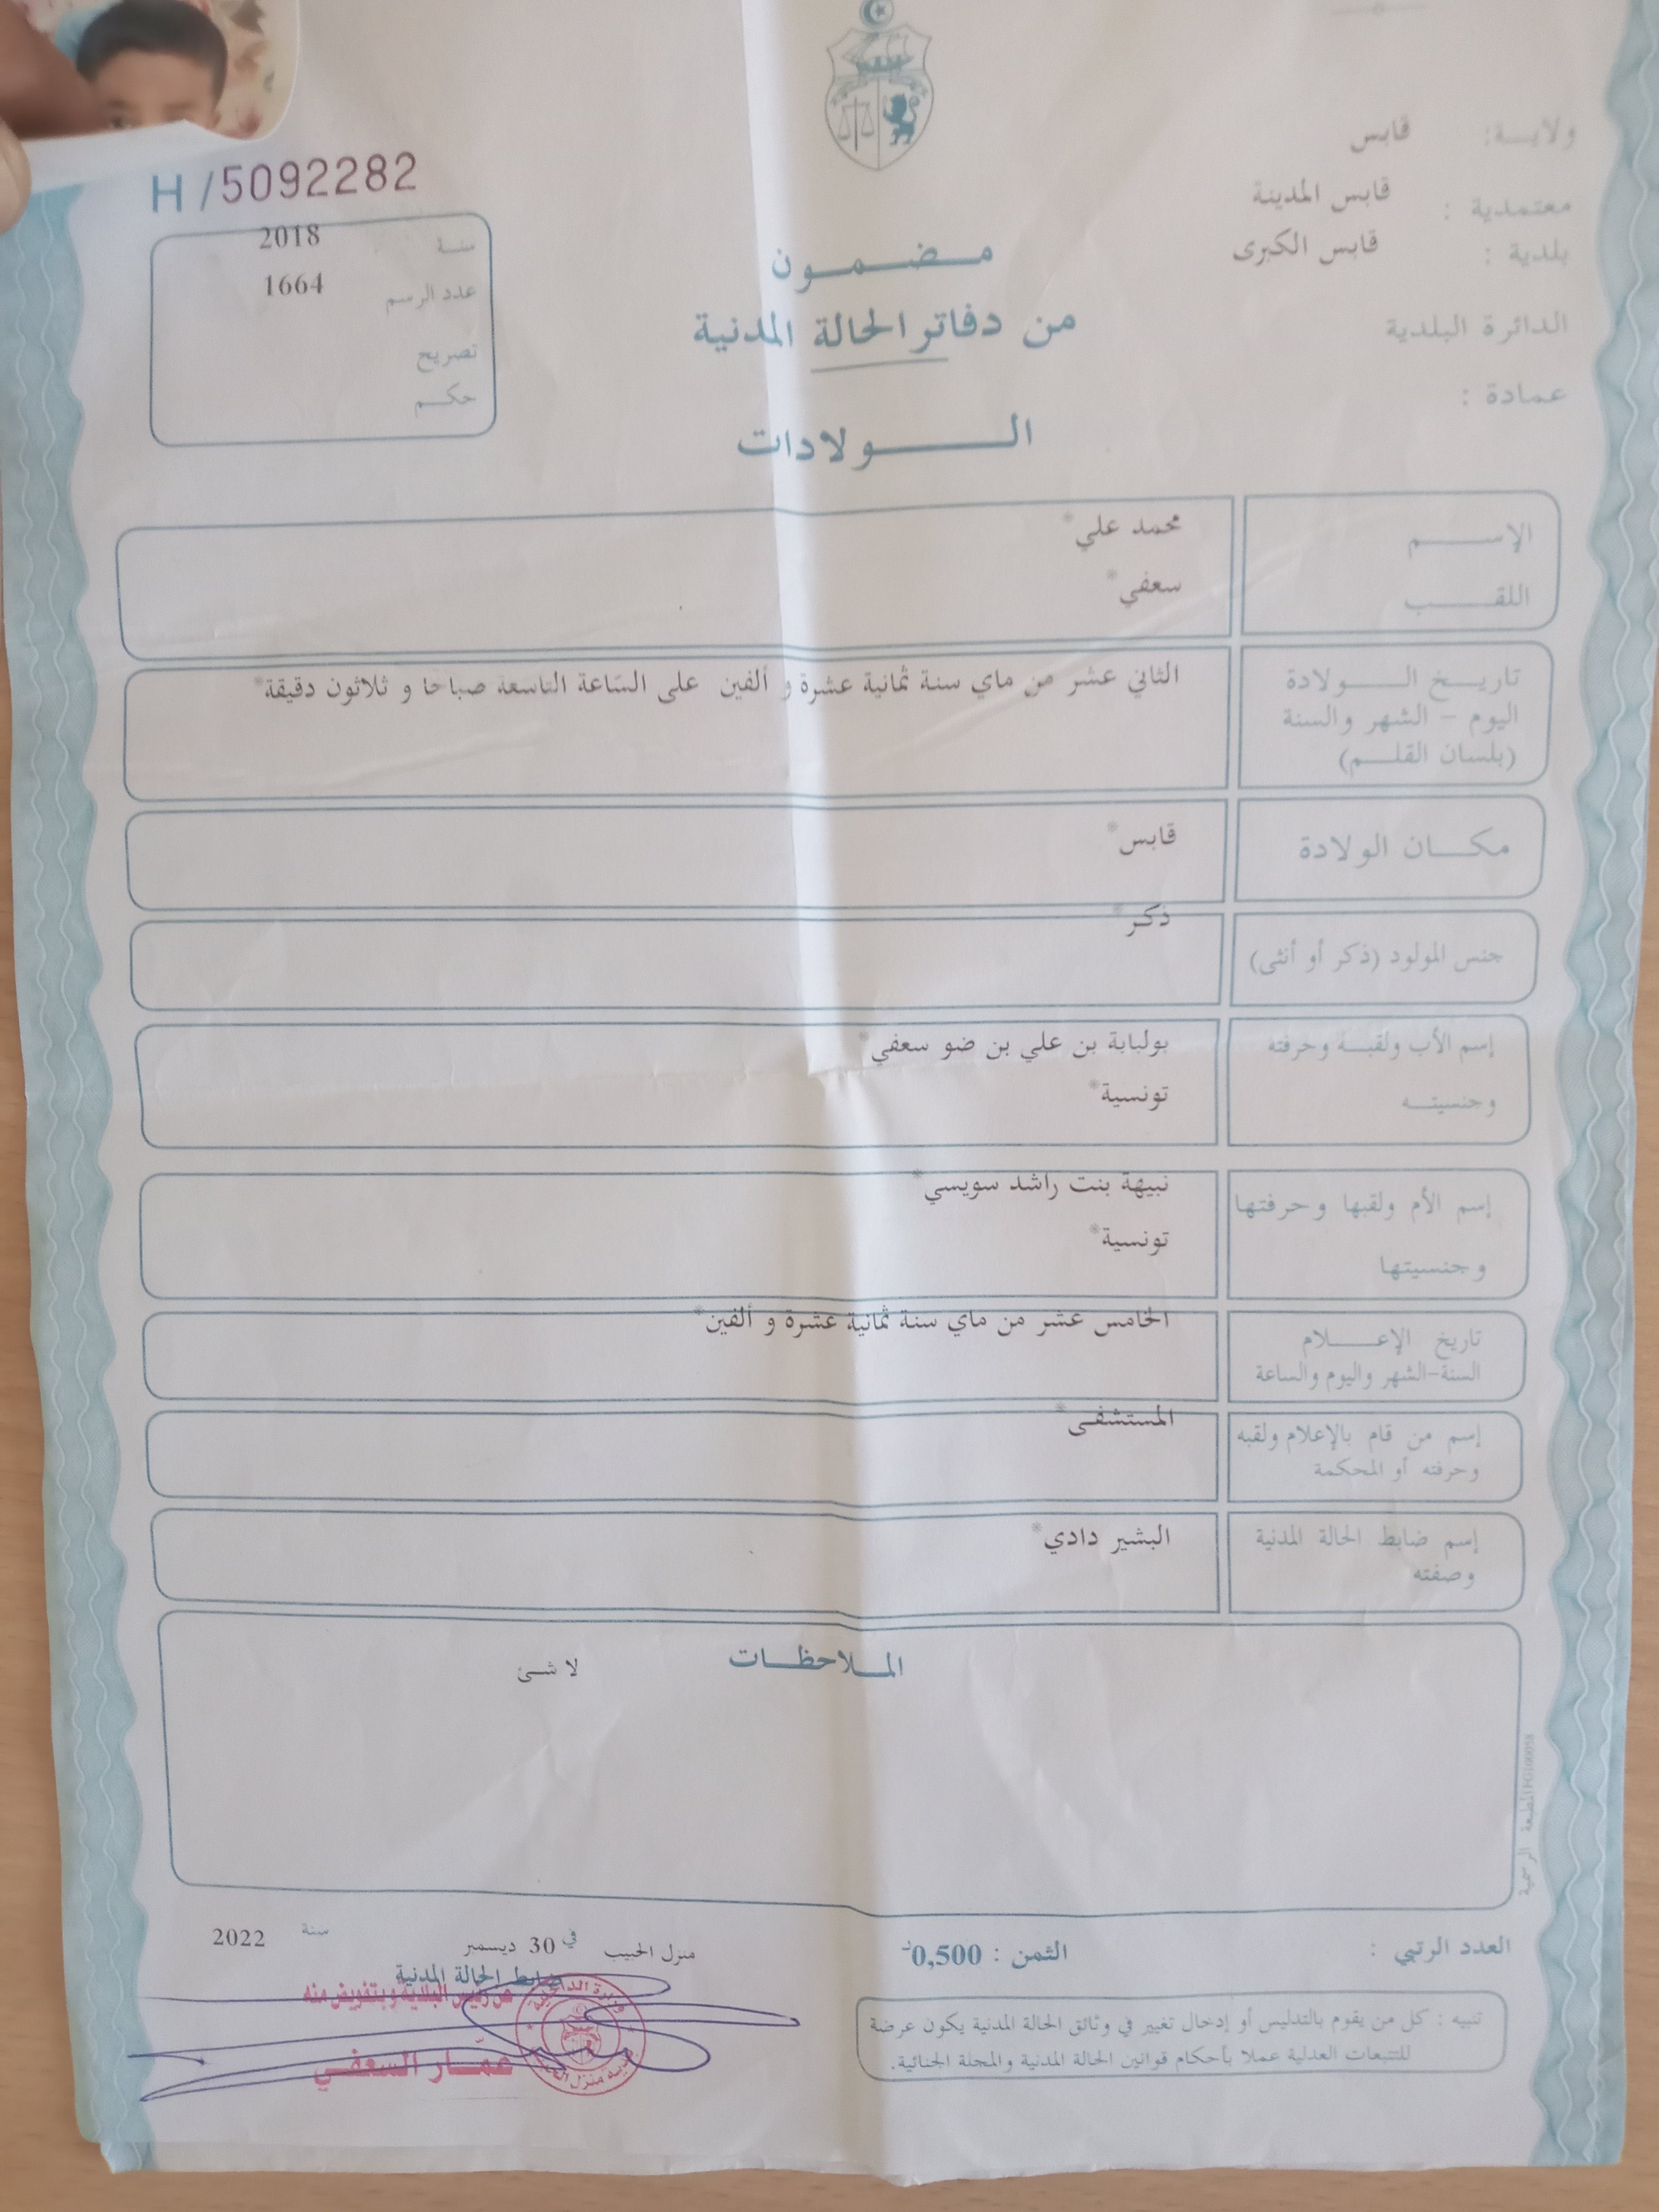 ولايـــة: قابس
معتمدية : قابس المدينة
بلدية : قابس الكبرى
الدائرة البلدية
عمادة :
H/5092282
سنـة 2018
عدد الرسم 1664
تصريح
حكـــم
مــضــمــون
من دفاتر الحالة المدنية
الــــولادات
الإســـــم محمد علي*
اللقـــــب سعفي*
تاريـــخ الـــــولادة الثاني عشر من ماي سنة ثمانية عشرة و ألفين على السّاعة التاسعة صباحا و ثلاثون دقيقة*
اليوم - الشهر والسنة
(بلسان القلـــم)
مكـــان الولادة قابس*
جنس المولود (ذكر أو أنثى) ذكر*
إسم الأب ولقبـــة وحرفته بولبابة بن علي بن ضو سعفي*
وجنسيتـــه تونسية*
إسم الأم ولقبها وحرفتها نبيهة بنت راشد سويسي*
وجنسيتها تونسية*
تاريخ الإعـــــلام الخامس عشر من ماي سنة ثمانية عشرة و ألفين*
السنة-الشهر واليوم والساعة
إسم من قام بالإعلام ولقبه المستشفى*
وحرفته أو المحكمة
إسم ضابط الحالة المدنية البشير دادي*
وصفته
المـــلاحظـــات
لا شئ
المطبعة الرسمية
العدد الرتبي :
الثمن : 0,500د
منزل الحبيب في 30 ديسمبر سنة 2022
ضابط الحالة المدنية
عن رئيس البلدية وبتفويض منه
عمّـار السعفـي
وزارة الداخلية
تنبيه : كل من يقوم بالتدليس أو إدخال تغيير في وثائق الحالة المدنية يكون عرضة
للتتبعات العدلية عملا بأحكام قوانين الحالة المدنية والمجلة الجنائية.